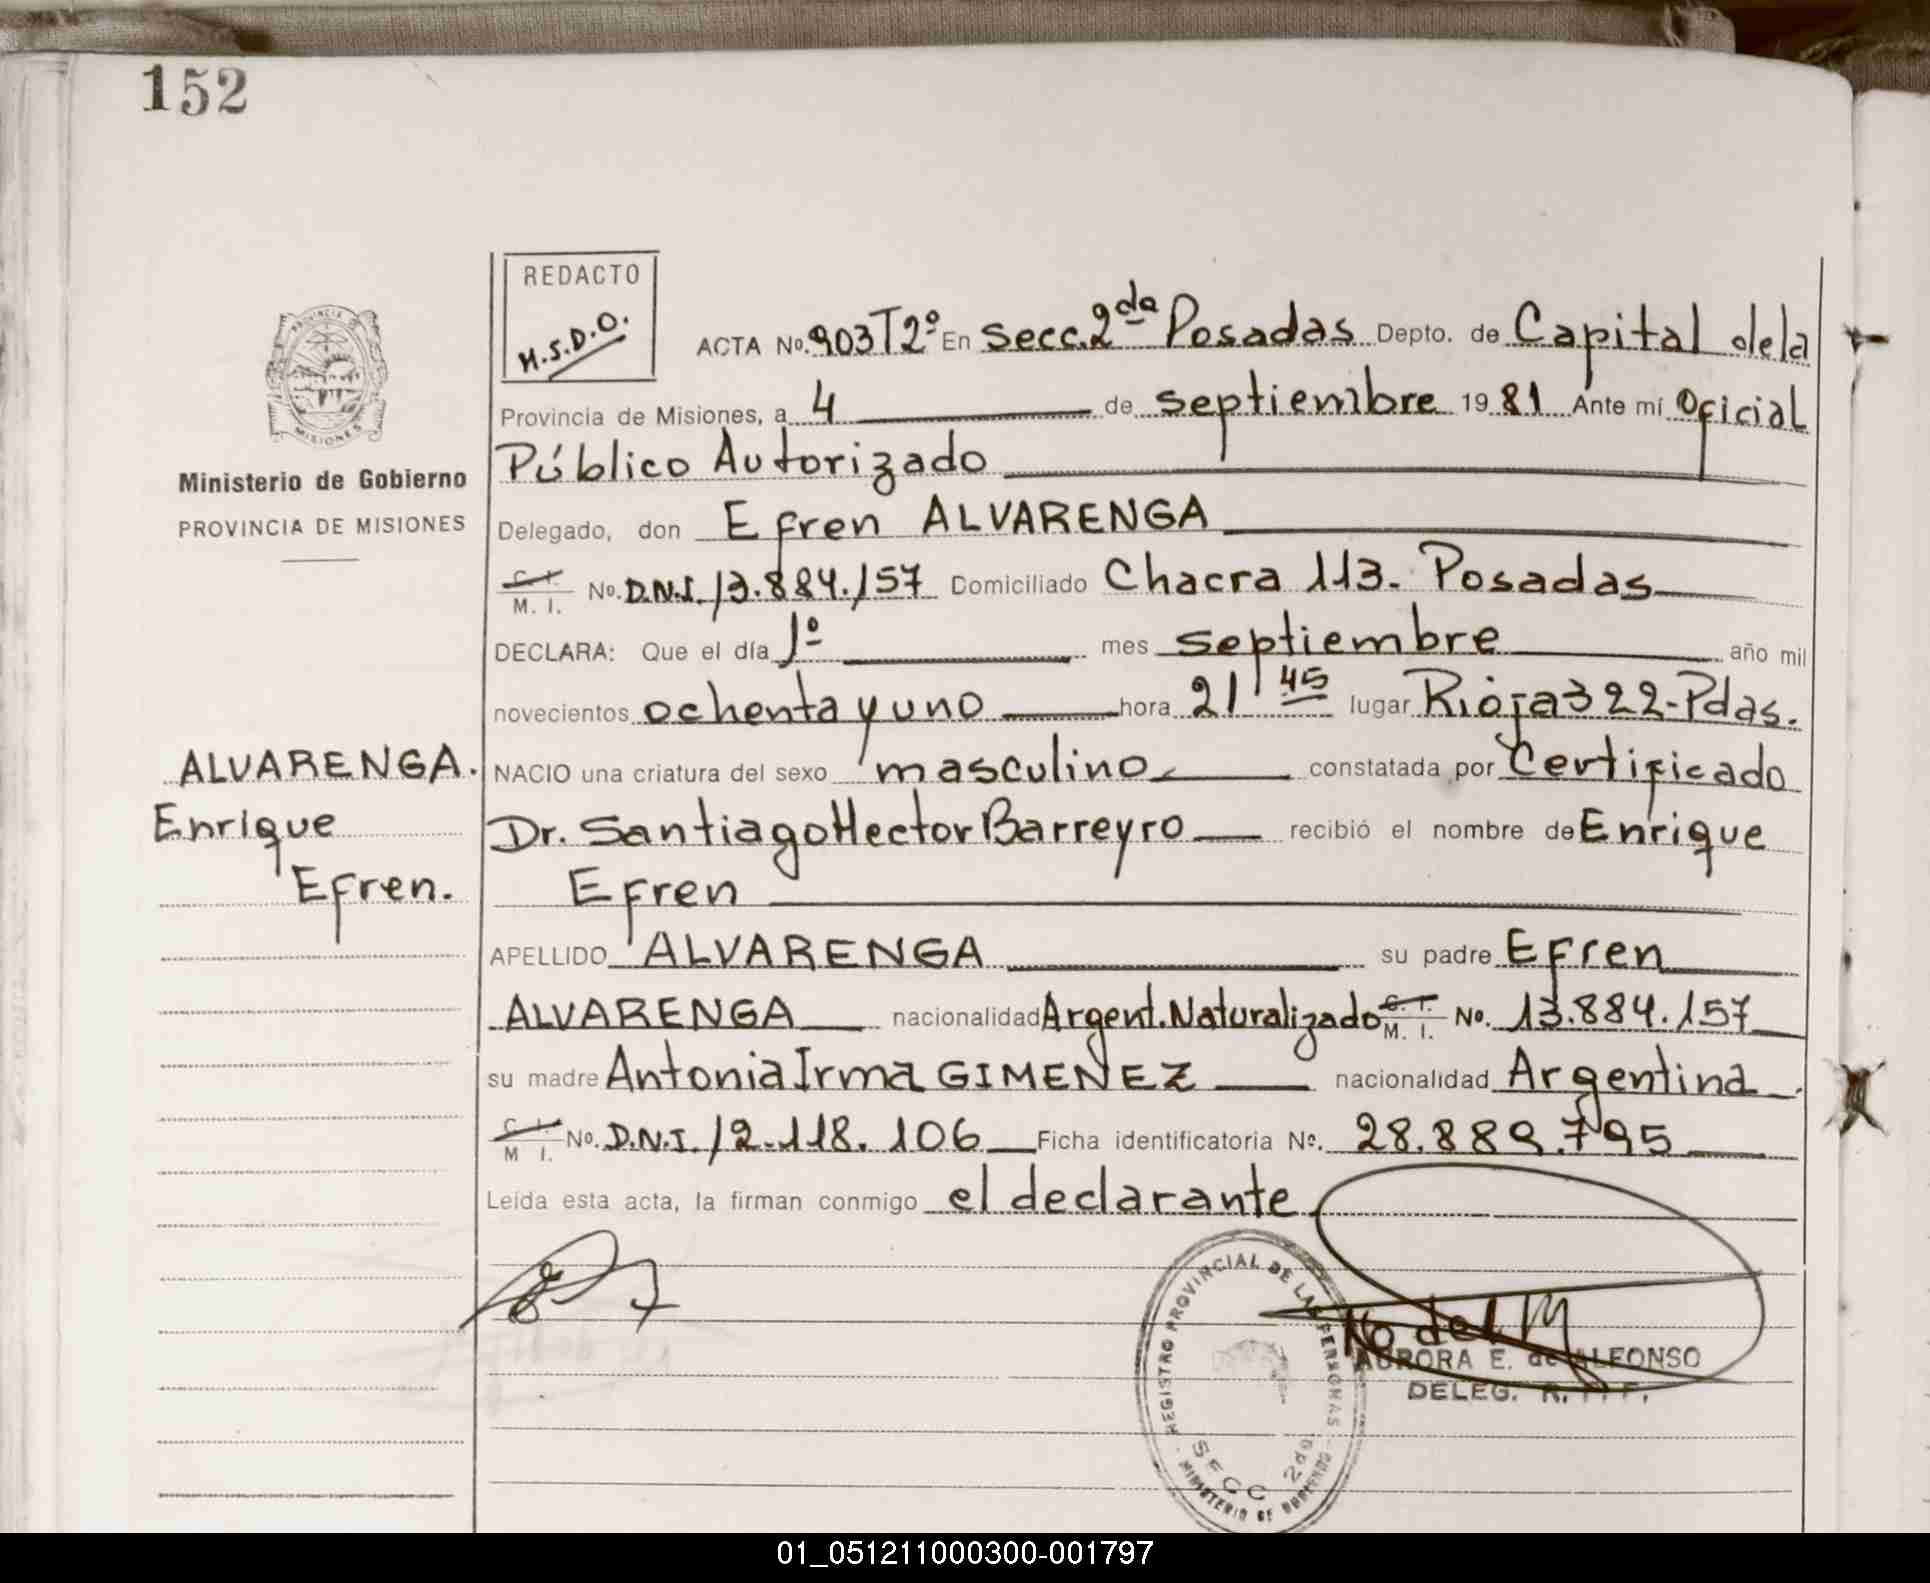 152
REDACTO
M.S.D.O.
ACTA No. 903 T 2º En Secc. 2da Posadas Depto. de Capital de la
Provincia de Misiones, a 4 de septiembre 19 81 Ante mí Oficial
Público Autorizado
Ministerio de Gobierno
PROVINCIA DE MISIONES
Delegado, don Efren ALVARENGA
C. I. M. I. No. D.N.I. 13.884.157 Domiciliado Chacra 113. Posadas
DECLARA: Que el día 1º mes septiembre año mil
novecientos ochenta y uno hora 21 45 lugar Rioja 322-Pdas.
ALVARENGA.
Enrique
Efren.
NACIO una criatura del sexo masculino constatada por Certificado
Dr. Santiago Hector Barreyro recibió el nombre de Enrique
Efren
APELLIDO ALVARENGA su padre Efren
ALVARENGA nacionalidad Argent. Naturalizado C. I. M. I. No. 13.884.157
su madre Antonia Irma GIMENEZ nacionalidad Argentina
C. I. M I. No. D.N.I. 12.118.106 Ficha identificatoria No. 28.889.795
Leída esta acta, la firman conmigo el declarante
REGISTRO PROVINCIAL DE LAS PERSONAS
SECC 2da
MINISTERIO DE GOBIERNO
AURORA E. de ALFONSO
DELEG. R.
01_051211000300-001797